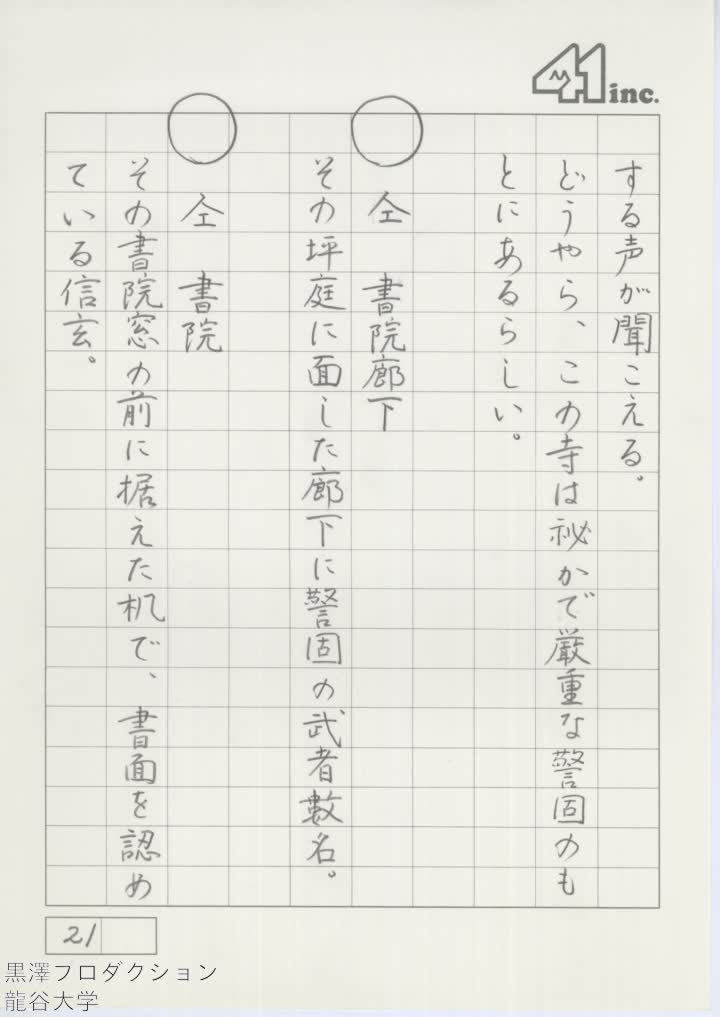 41 inc.
する声が聞こえる。
どうやら、この寺は秘かで厳重な警固のも
とにあるらしい。
仝 書院廊下
その坪庭に面した廊下に警固の武者數名。
仝 書院
その書院窓の前に据えた机で、書面を認め
ている信玄。
21
黒澤プロダクション
龍谷大学